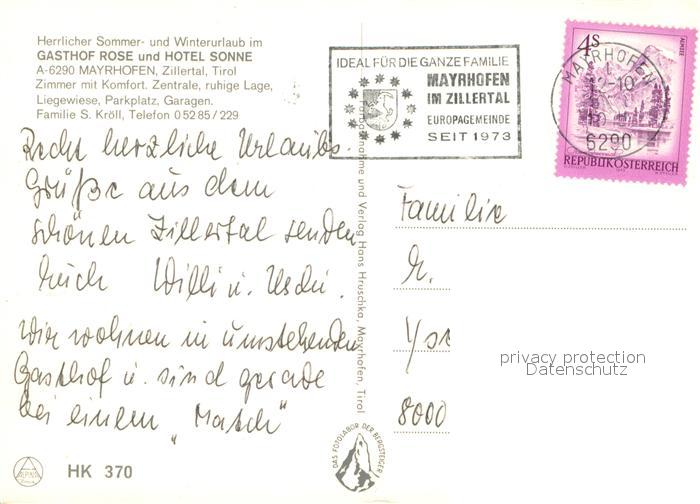 Herrlicher Sommer- und Winterurlaub im
GASTHOF ROSE und HOTEL SONNE
A-6290 MAYRHOFEN, Zillertal, Tirol
Zimmer mit Komfort. Zentrale, ruhige Lage,
Liegewiese, Parkplatz, Garagen.
Familie S. Kröll, Telefon 0 52 85 / 229
IDEAL FÜR DIE GANZE FAMILIE
MAYRHOFEN
IM ZILLERTAL
EUROPAGEMEINDE
SEIT 1973
4S
ALMSEE
MAYRHOFEN
12-10
6290
REPUBLIK ÖSTERREICH
Recht herzliche Urlaubs-
Grüße aus dem
schönen Zillertal senden
Euch Willi u. Uschi.
Wir wohnen in umstehenden
Gasthof u. sind gerade
bei einem „Match"
Farbaufnahme und Verlag Hans Hruschka, Mayrhofen, Tirol
Familie
8000
privacy protection
Datenschutz
DAS FOTOLABOR DER BERGSTEIGER
ALPINA
HK 370